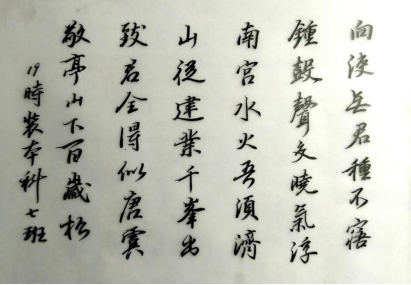 向使无君種不窹
鍾鼓聲文曉氣浮
南宫水火吾須濟
山從建業千峯出
致君全得似唐虞
敬亭山下百歲松
19時裝本科七班